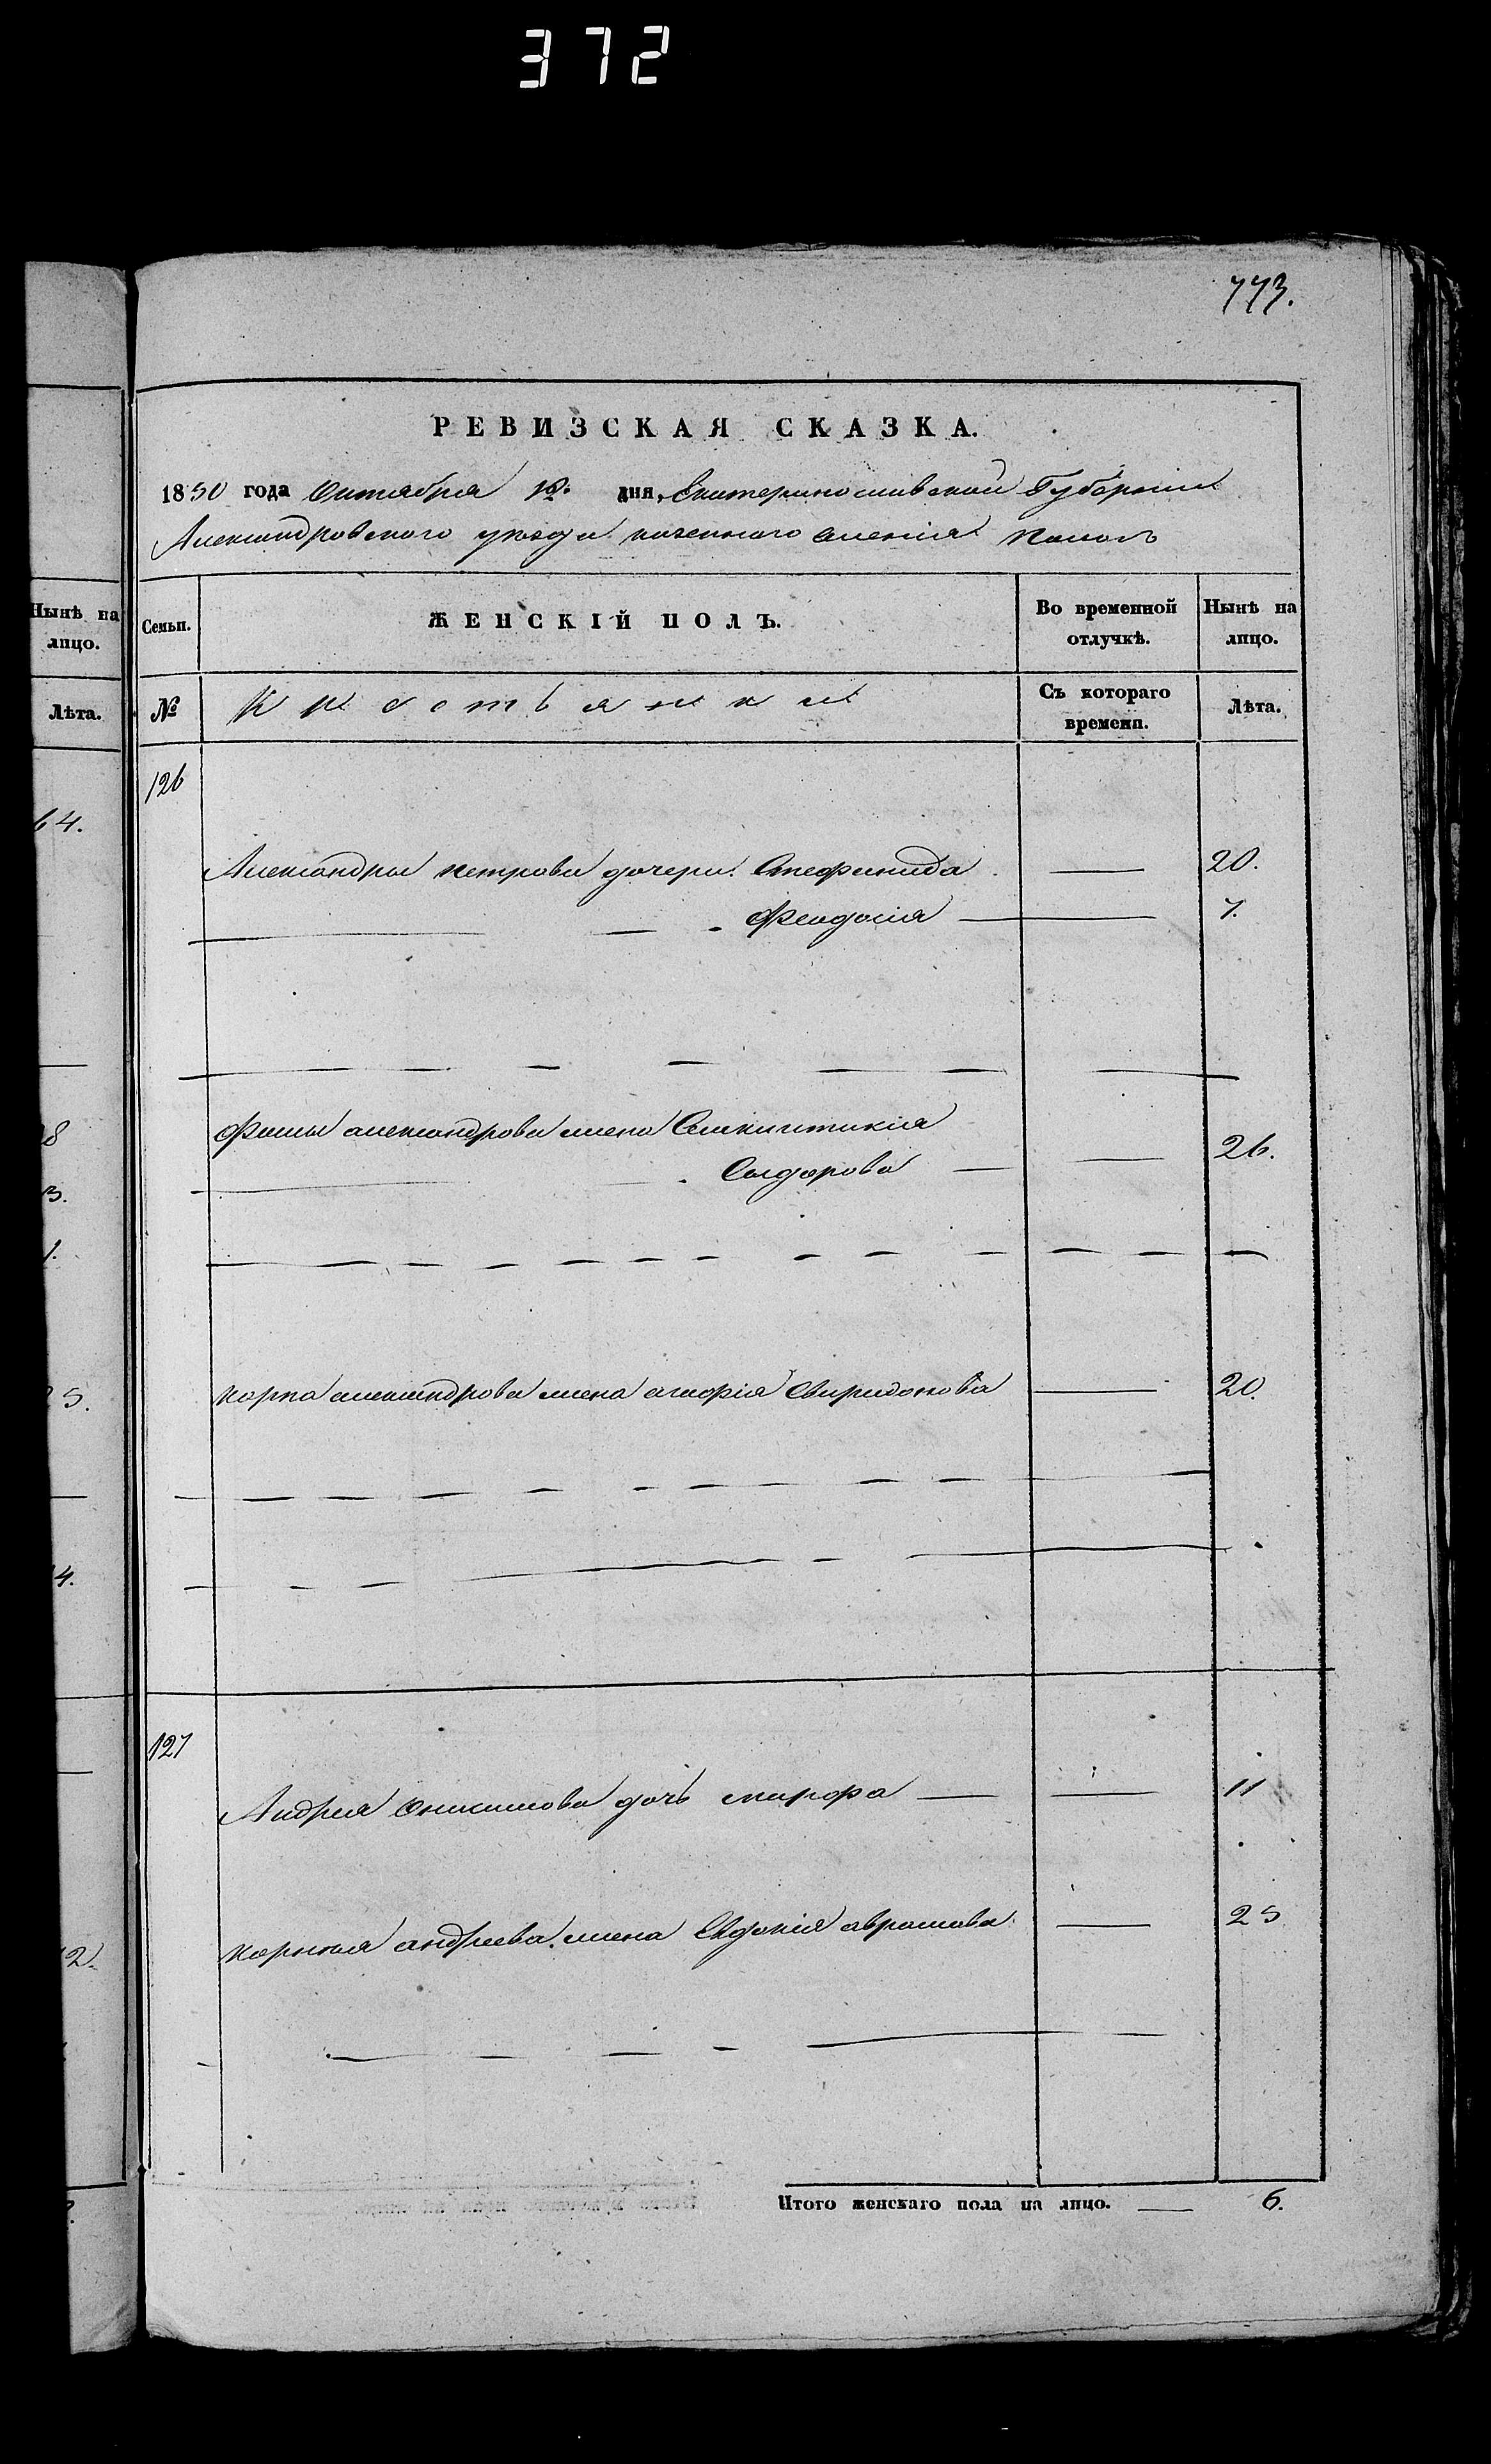 372
773.
РЕВИЗСКАЯ СКАЗКА.
1850 года Октября 12. дня, Екатеринославской Губернии
Александровского уезда казенного селения
Нынѣ на лицо.
Семьи.
ЖЕНСКІЙ ПОЛЪ.
Во временной отлучкѣ.
Нынѣ на лицо.
Лѣта.
№
Крестьянки
Съ котораго времени.
Лѣта.
126
64.
Александры петрова дочери Степанида 20.
Феодосія 7.
8
3.
Фомы александрова жена
Сыдорова 26.
1.
5.
карпа александрова жена Свиридонова 20.
4.
127
Андрея Онисимова дочь марфа 11
2.
корнея андреева жена Евдокія аврамова 25
Итого женскаго пола на лицо. 6.